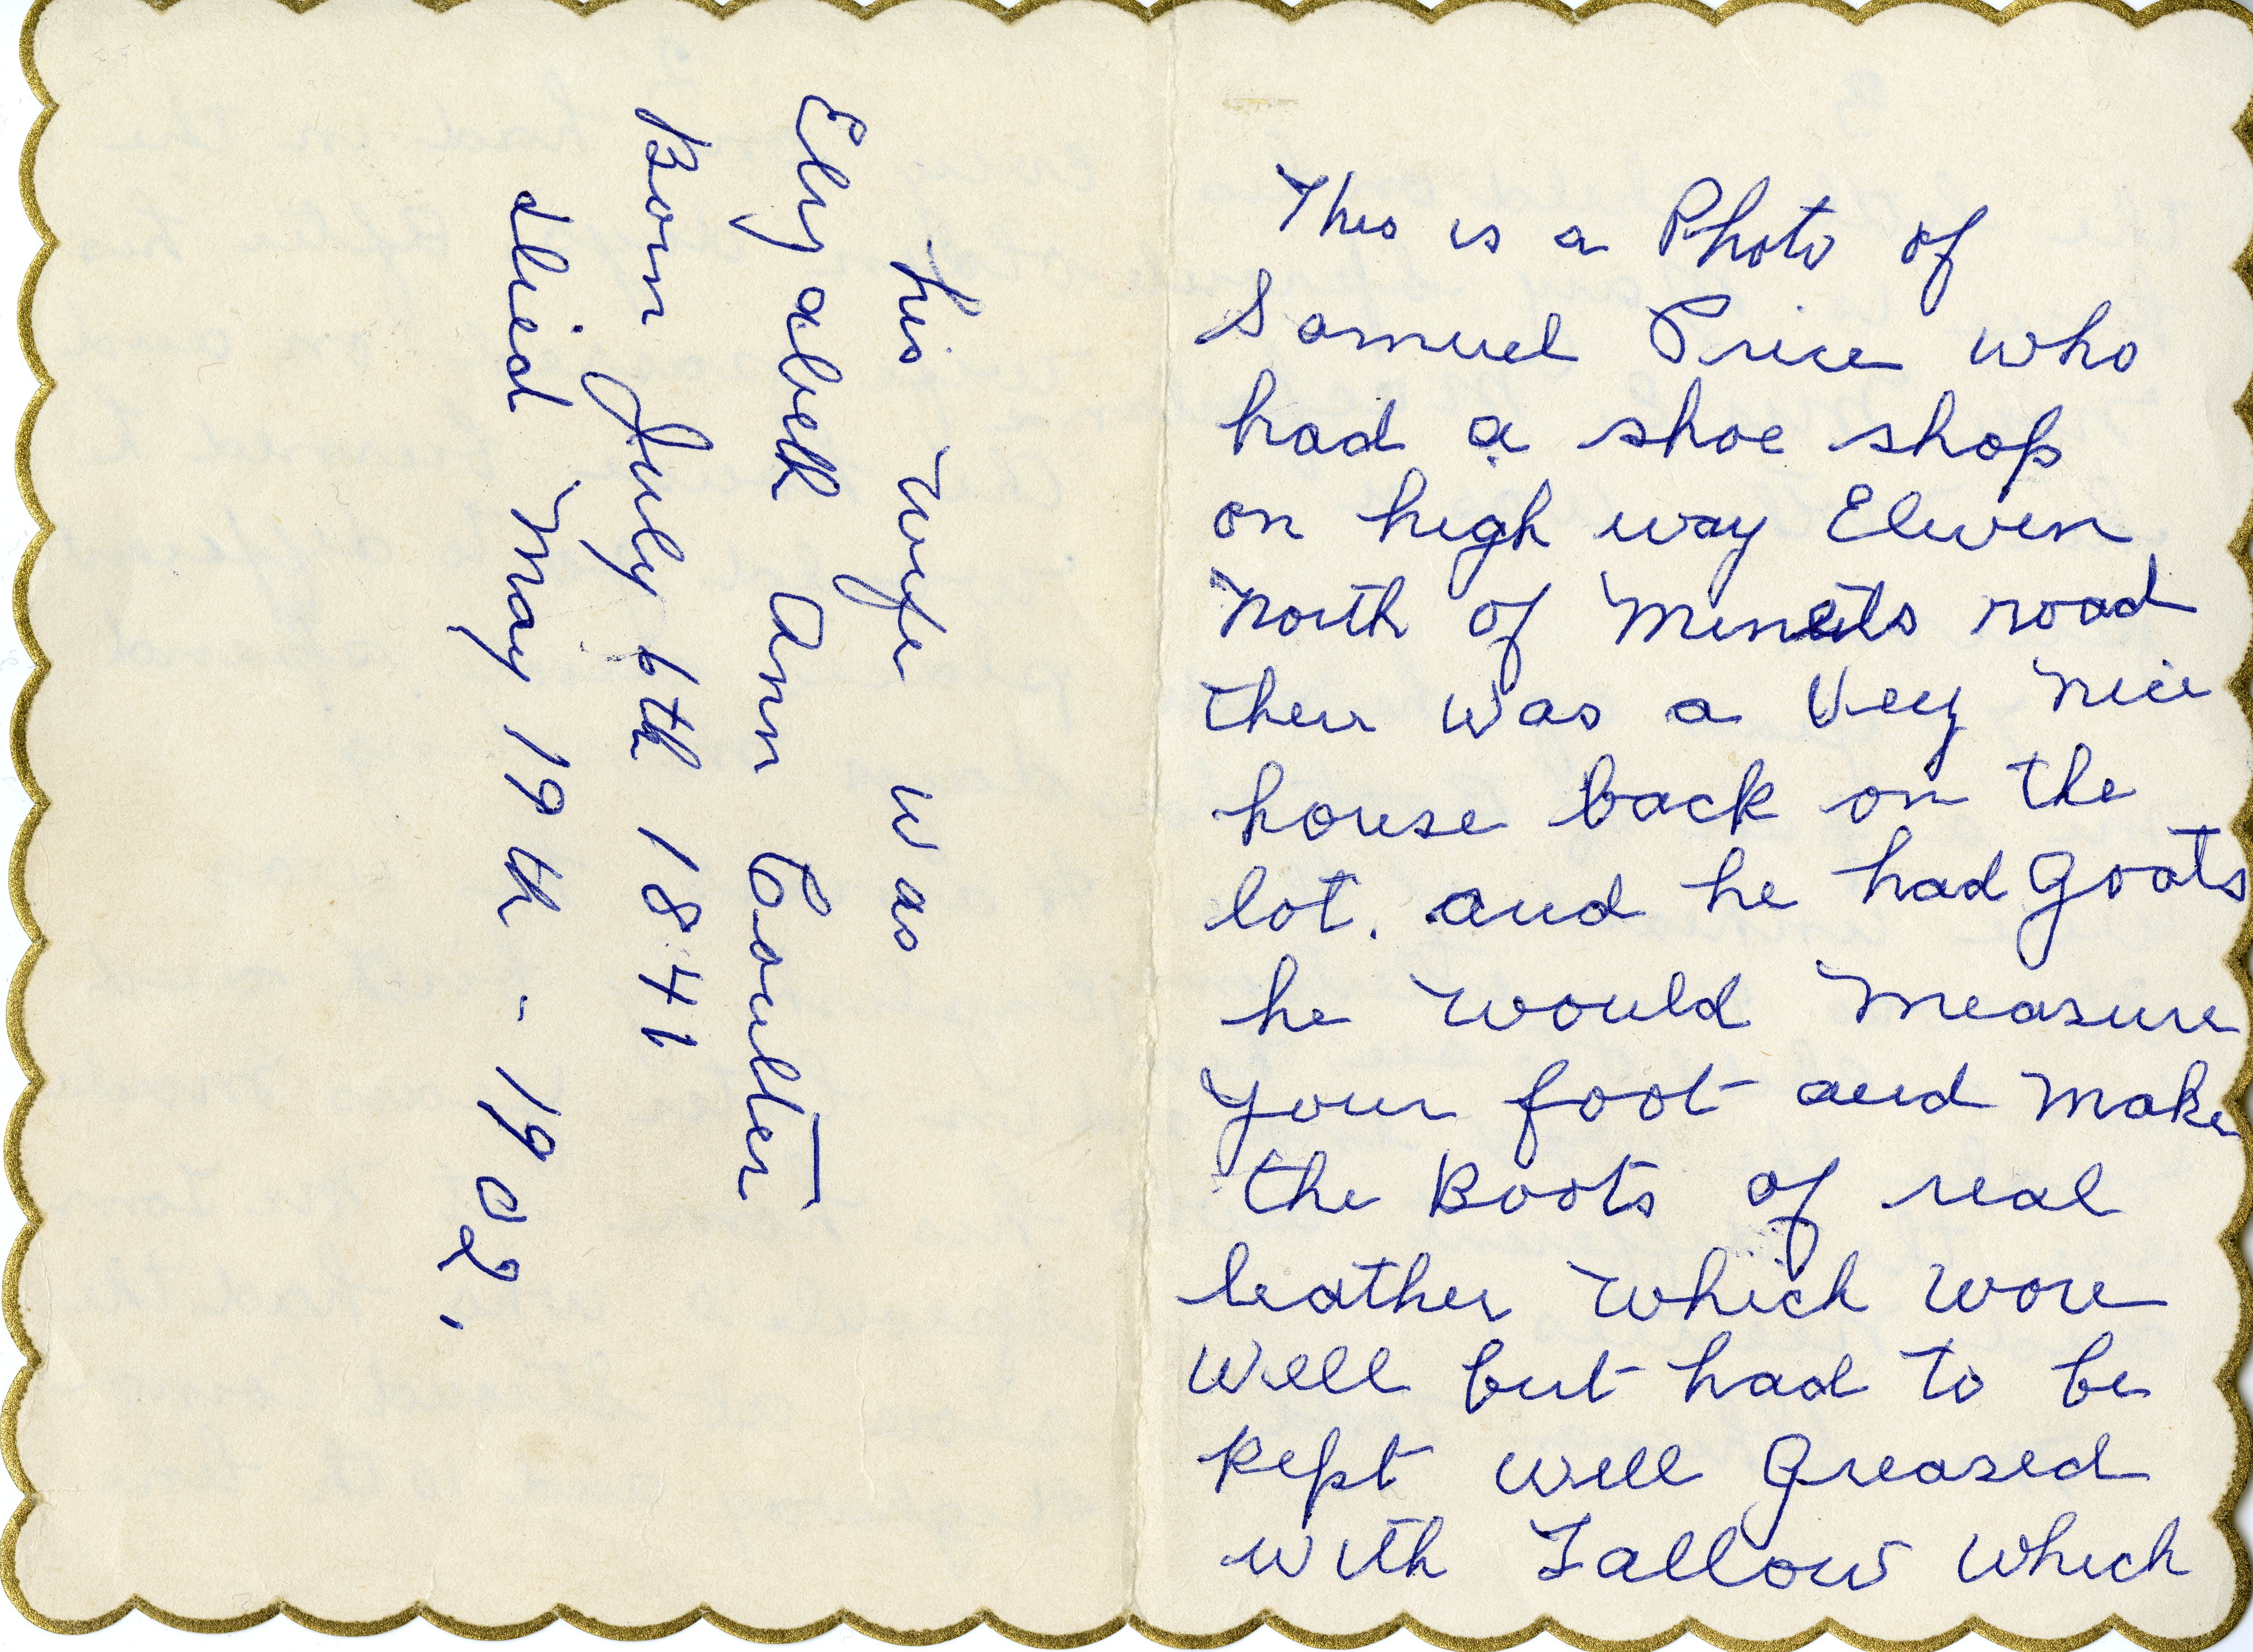 his wife was
Elyabeth Ann Coulter
Born July 6th 1841
died May 19th - 1902.
This is a Photo of
Samuel Price who
had a shoe shop
on high way Eleven
North of Minets road
ther was a Vey Nice
house back on the
lot. and he had Goats
he would Measure
your foot and Make
the Boots of real
leather which wore
well but had to be
kept well Greased
with Tallow which